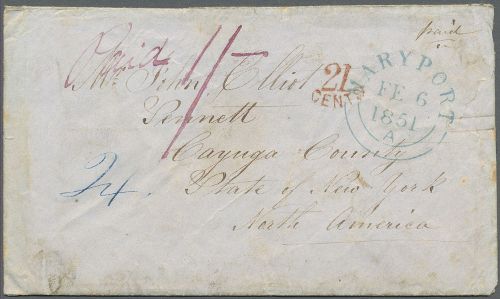 paid
Paid 1/-
Mr John Elliot
Sennett
Cayuga County
State of New York
North America
21
CENTS
MARYPORT
FE 6
1851
A
24